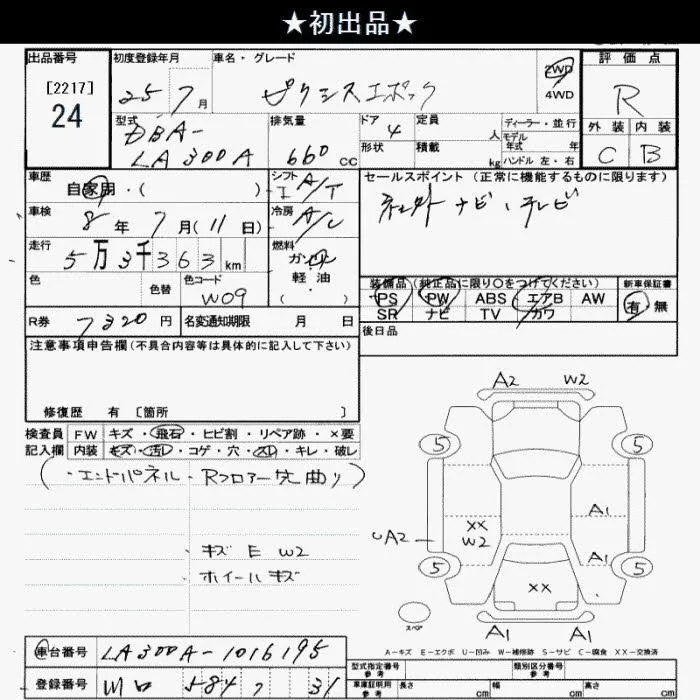 ★初出品★
出品番号
[2217]
24
初度登録年月
25年 7月
車名・グレード
ピクシスエポック
2WD
4WD
評価点
R
外装 内装
C B
型式
DBA-
LA300A
排気量
660 cc
ドア
4
形状
定員
人
積載
kg
ディーラー・並行
モデル
年式 年
ハンドル 左・右
車歴
自家用・( )
シフト
I A/T
セールスポイント(正常に機能するものに限ります)
社外ナビ・テレビ
車検
8年 7月(11日)
冷房
A/C
走行
5万3千363km
燃料
ガソリン
軽油
( )
色
色替
色コード
W09
装備品(純正品に限り○をつけてください)
PS PW ABS エアB AW
SR ナビ TV カワ
新車保証書
有 無
R券 7320円
名変通知期限 月 日
後日品
注意事項申告欄(不具合内容等は具体的に記入して下さい)
修復歴 有 [箇所 ]
検査員 FW キズ・飛石・ヒビ割・リペア跡・×要
記入欄 内装 キズ・汚レ・コゲ・穴・スレ・キレ・破レ
(・エンドパネル・Rフロアー先曲り)
・キズ E W2
・ホイールキズ
A2 W2
5 5
A1
XX
W2
UA2
A1
5 5
XX
スペア
A1 A1
A-キズ E-エクボ U-凹み W-補修跡 S-サビ C-腐食 XX-交換済
車台番号 LA300A-1016195
登録番号 584 31
型式指定番号
参考
類別区分番号
参考
車庫証明用
参考
長さ cm 幅 cm 高さ cm